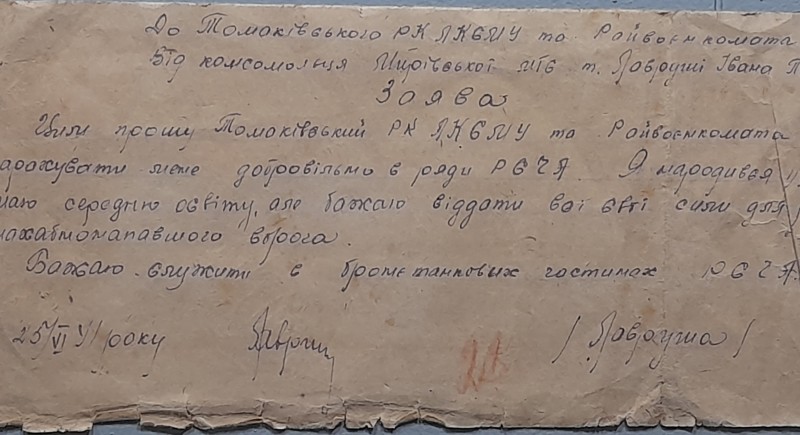 До Томаківського РК ЛКСМУ та Райвоєнкомата
Від комсомольця Мирівської МТС т. Лавруші Івана П
Заява
Цим прошу Томаківський РК ЛКСМУ та Райвоєнкомата
арахувати мене добровільно в ряди РСЧА. Я народився
маю середню освіту, але бажаю віддати всі свої сили для
нахабнонапавшого ворога.
Бажаю служити в бронетанкових частинах РСЧА.
25/VI 41 року
/ Лавруша /